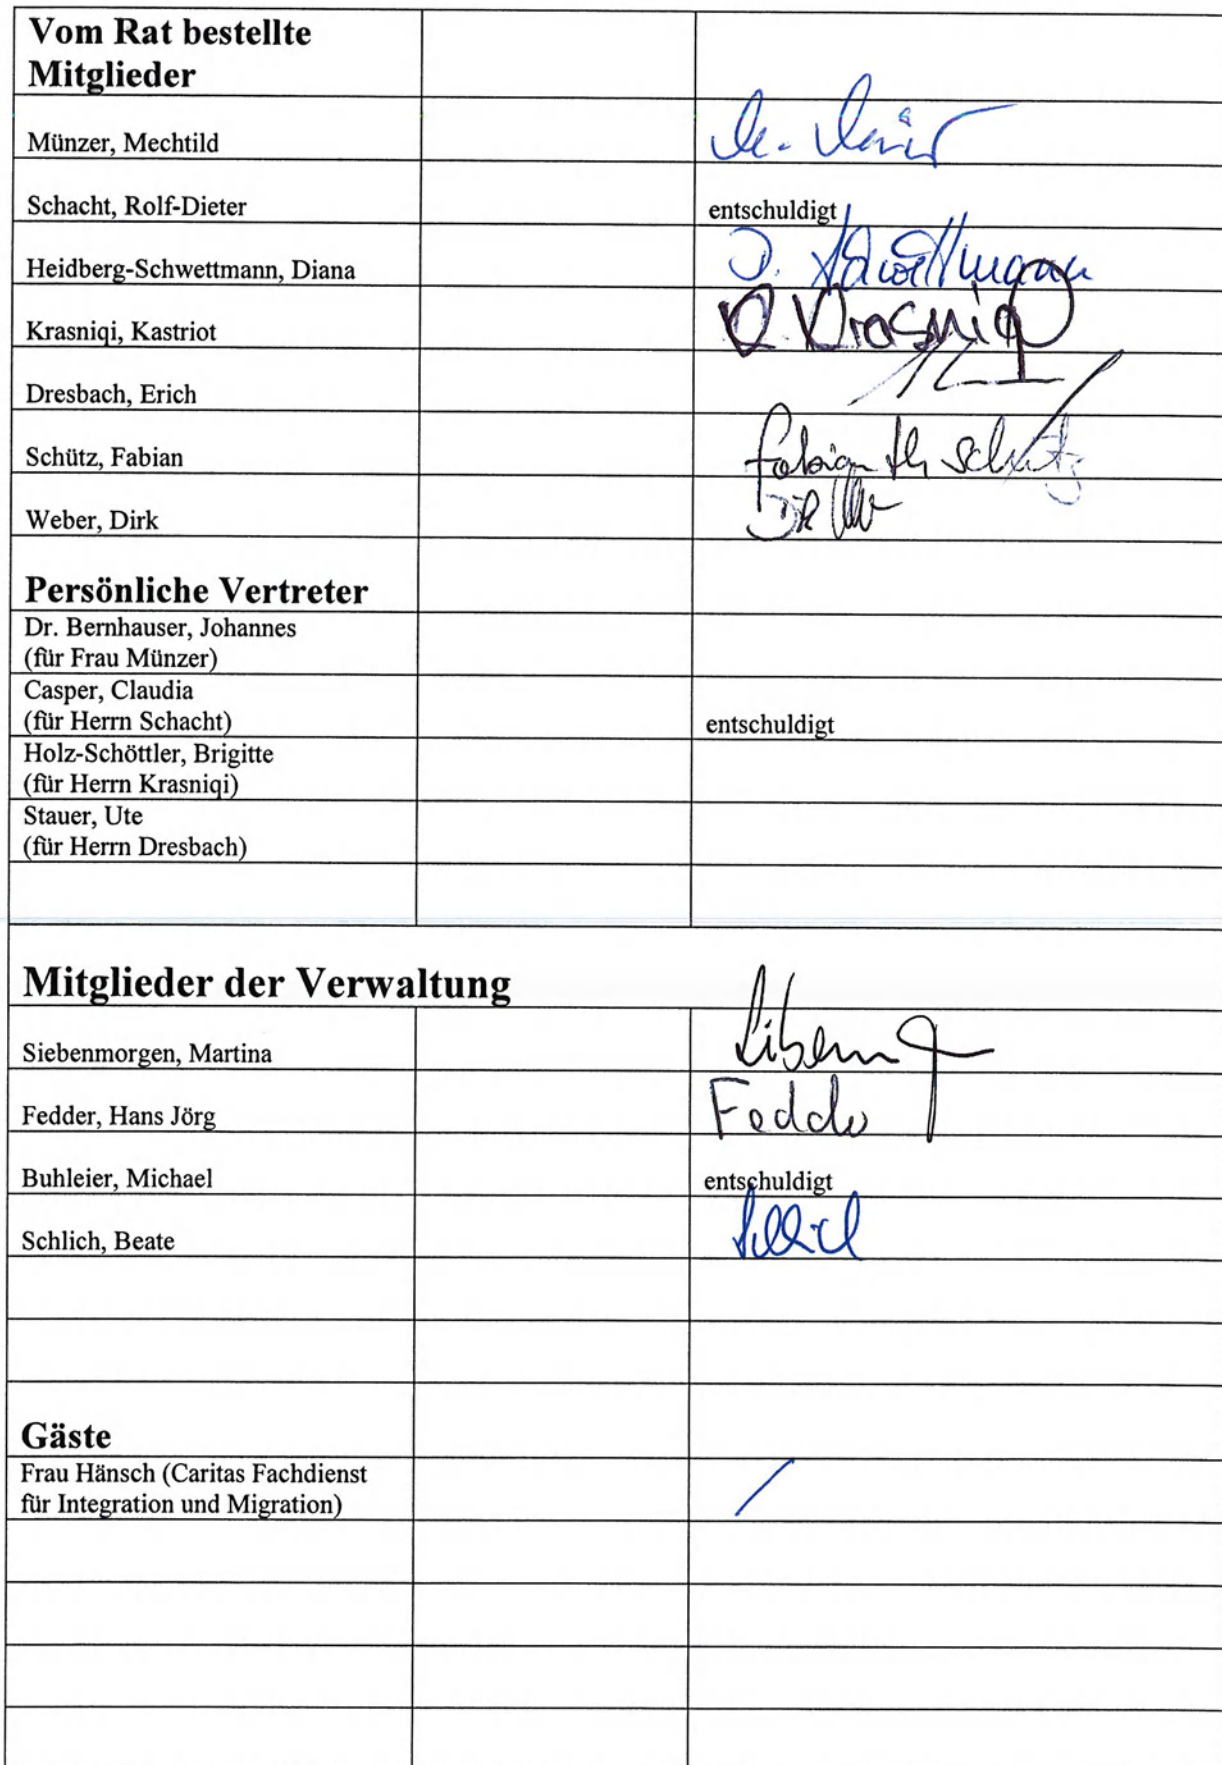 Vom Rat bestellte
Mitglieder
Münzer, Mechtild
Schacht, Rolf-Dieter entschuldigt
Heidberg-Schwettmann, Diana D. Schwettmann
Krasniqi, Kastriot K. Krasniqi
Dresbach, Erich
Schütz, Fabian Fabian Schütz
Weber, Dirk
Persönliche Vertreter
Dr. Bernhauser, Johannes
(für Frau Münzer)
Casper, Claudia
(für Herrn Schacht) entschuldigt
Holz-Schöttler, Brigitte
(für Herrn Krasniqi)
Stauer, Ute
(für Herrn Dresbach)
Mitglieder der Verwaltung
Siebenmorgen, Martina
Fedder, Hans Jörg Fedder
Buhleier, Michael entschuldigt
Schlich, Beate Schlich
Gäste
Frau Hänsch (Caritas Fachdienst
für Integration und Migration)